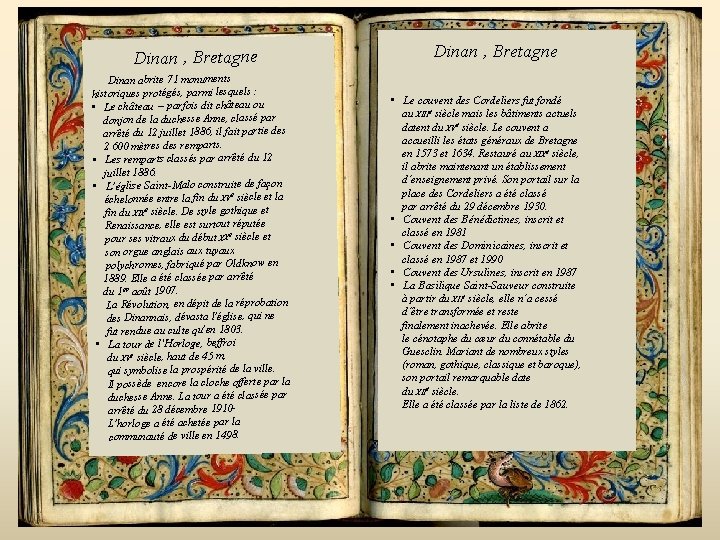 Dinan , Bretagne
Dinan abrite 71 monuments
historiques protégés, parmi lesquels :
• Le château – parfois dit château ou
donjon de la duchesse Anne, classé par
arrêté du 12 juillet 1886, il fait partie des
2 600 mètres des remparts.
• Les remparts classés par arrêté du 12
juillet 1886.
• L'église Saint-Malo construite de façon
échelonnée entre la fin du XVe siècle et la
fin du XIXe siècle. De style gothique et
Renaissance, elle est surtout réputée
pour ses vitraux du début XXe siècle et
son orgue anglais aux tuyaux
polychromes, fabriqué par Oldknow en
1889. Elle a été classée par arrêté
du 1er août 1907.
La Révolution, en dépit de la réprobation
des Dinannais, dévasta l'église, qui ne
fut rendue au culte qu'en 1803.
• La tour de l'Horloge, beffroi
du XVe siècle, haut de 45 m,
qui symbolise la prospérité de la ville.
Il possède encore la cloche offerte par la
duchesse Anne. La tour a été classée par
arrêté du 28 décembre 1910-
L'horloge a été achetée par la
communauté de ville en 1498.
Dinan , Bretagne
• Le couvent des Cordeliers fut fondé
au XIIIe siècle mais les bâtiments actuels
datent du XVe siècle. Le couvent a
accueilli les états généraux de Bretagne
en 1573 et 1634. Restauré au XIXe siècle,
il abrite maintenant un établissement
d'enseignement privé. Son portail sur la
place des Cordeliers a été classé
par arrêté du 29 décembre 1930.
• Couvent des Bénédictines, inscrit et
classé en 1981
• Couvent des Dominicaines, inscrit et
classé en 1987 et 1990
• Couvent des Ursulines, inscrit en 1987
• La Basilique Saint-Sauveur construite
à partir du XIIe siècle, elle n'a cessé
d'être transformée et reste
finalement inachevée. Elle abrite
le cénotaphe du cœur du connétable du
Guesclin. Mariant de nombreux styles
(roman, gothique, classique et baroque),
son portail remarquable date
du XIIe siècle.
Elle a été classée par la liste de 1862.